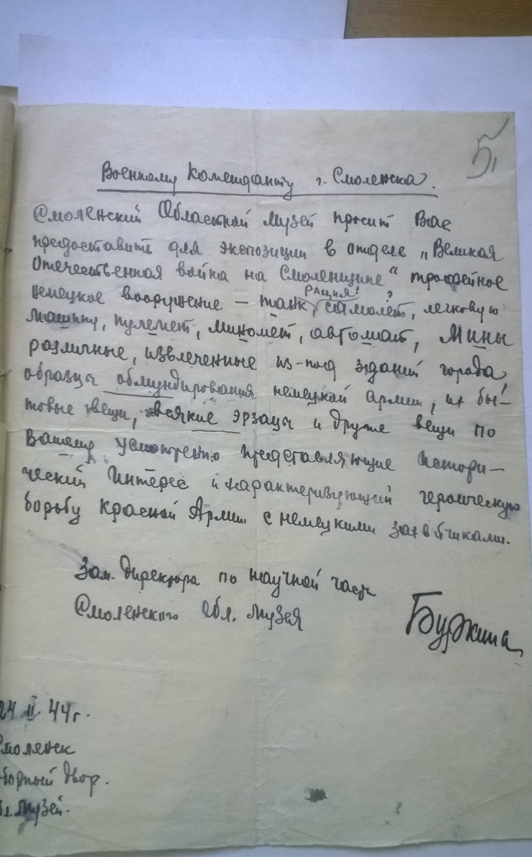 5,
Военному Коменданту г. Смоленска.
Смоленский Областной музей просит Вас
предоставить для экспозиции в отделе „Великая
Отечественная война на Смоленщине" трофейное
немецкое вооружение – танк, рация? самолёт, ? легковую
машину, пулемет, миномёт, автомат, Мины
различные, извлеченные из-под зданий города
образца обмундирования немецкой армии, их бы-
товые вещи, всякие эрзацы и другие вещи по
Вашему усмотрению представляющие истори-
ческий Интерес и характеризующий героическую
борьбу Красной Армии с немецкими захватчиками.
Зам. директора по научной части
Смоленского Обл. Музея
24 II. 44 г.
моленск
двор.
Музей.